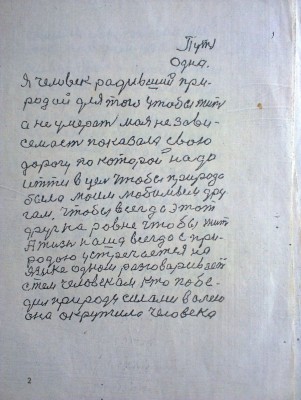 Пути
Одна.
Я человек радивший при-
родай для того чтобы жит
а не умерат моя не зави-
семаст показала свою
дорогу по которой надо
итти в цем чтобы природа
была моим любимым дру
гам, чтобы всегда этот
друг на ровне чтобы жит
А жизн наша всегда с при-
родою устречается на
языке одном разговаривает
с тем человекам, кто побе-
дил природу силами волею
она окружила человека
2